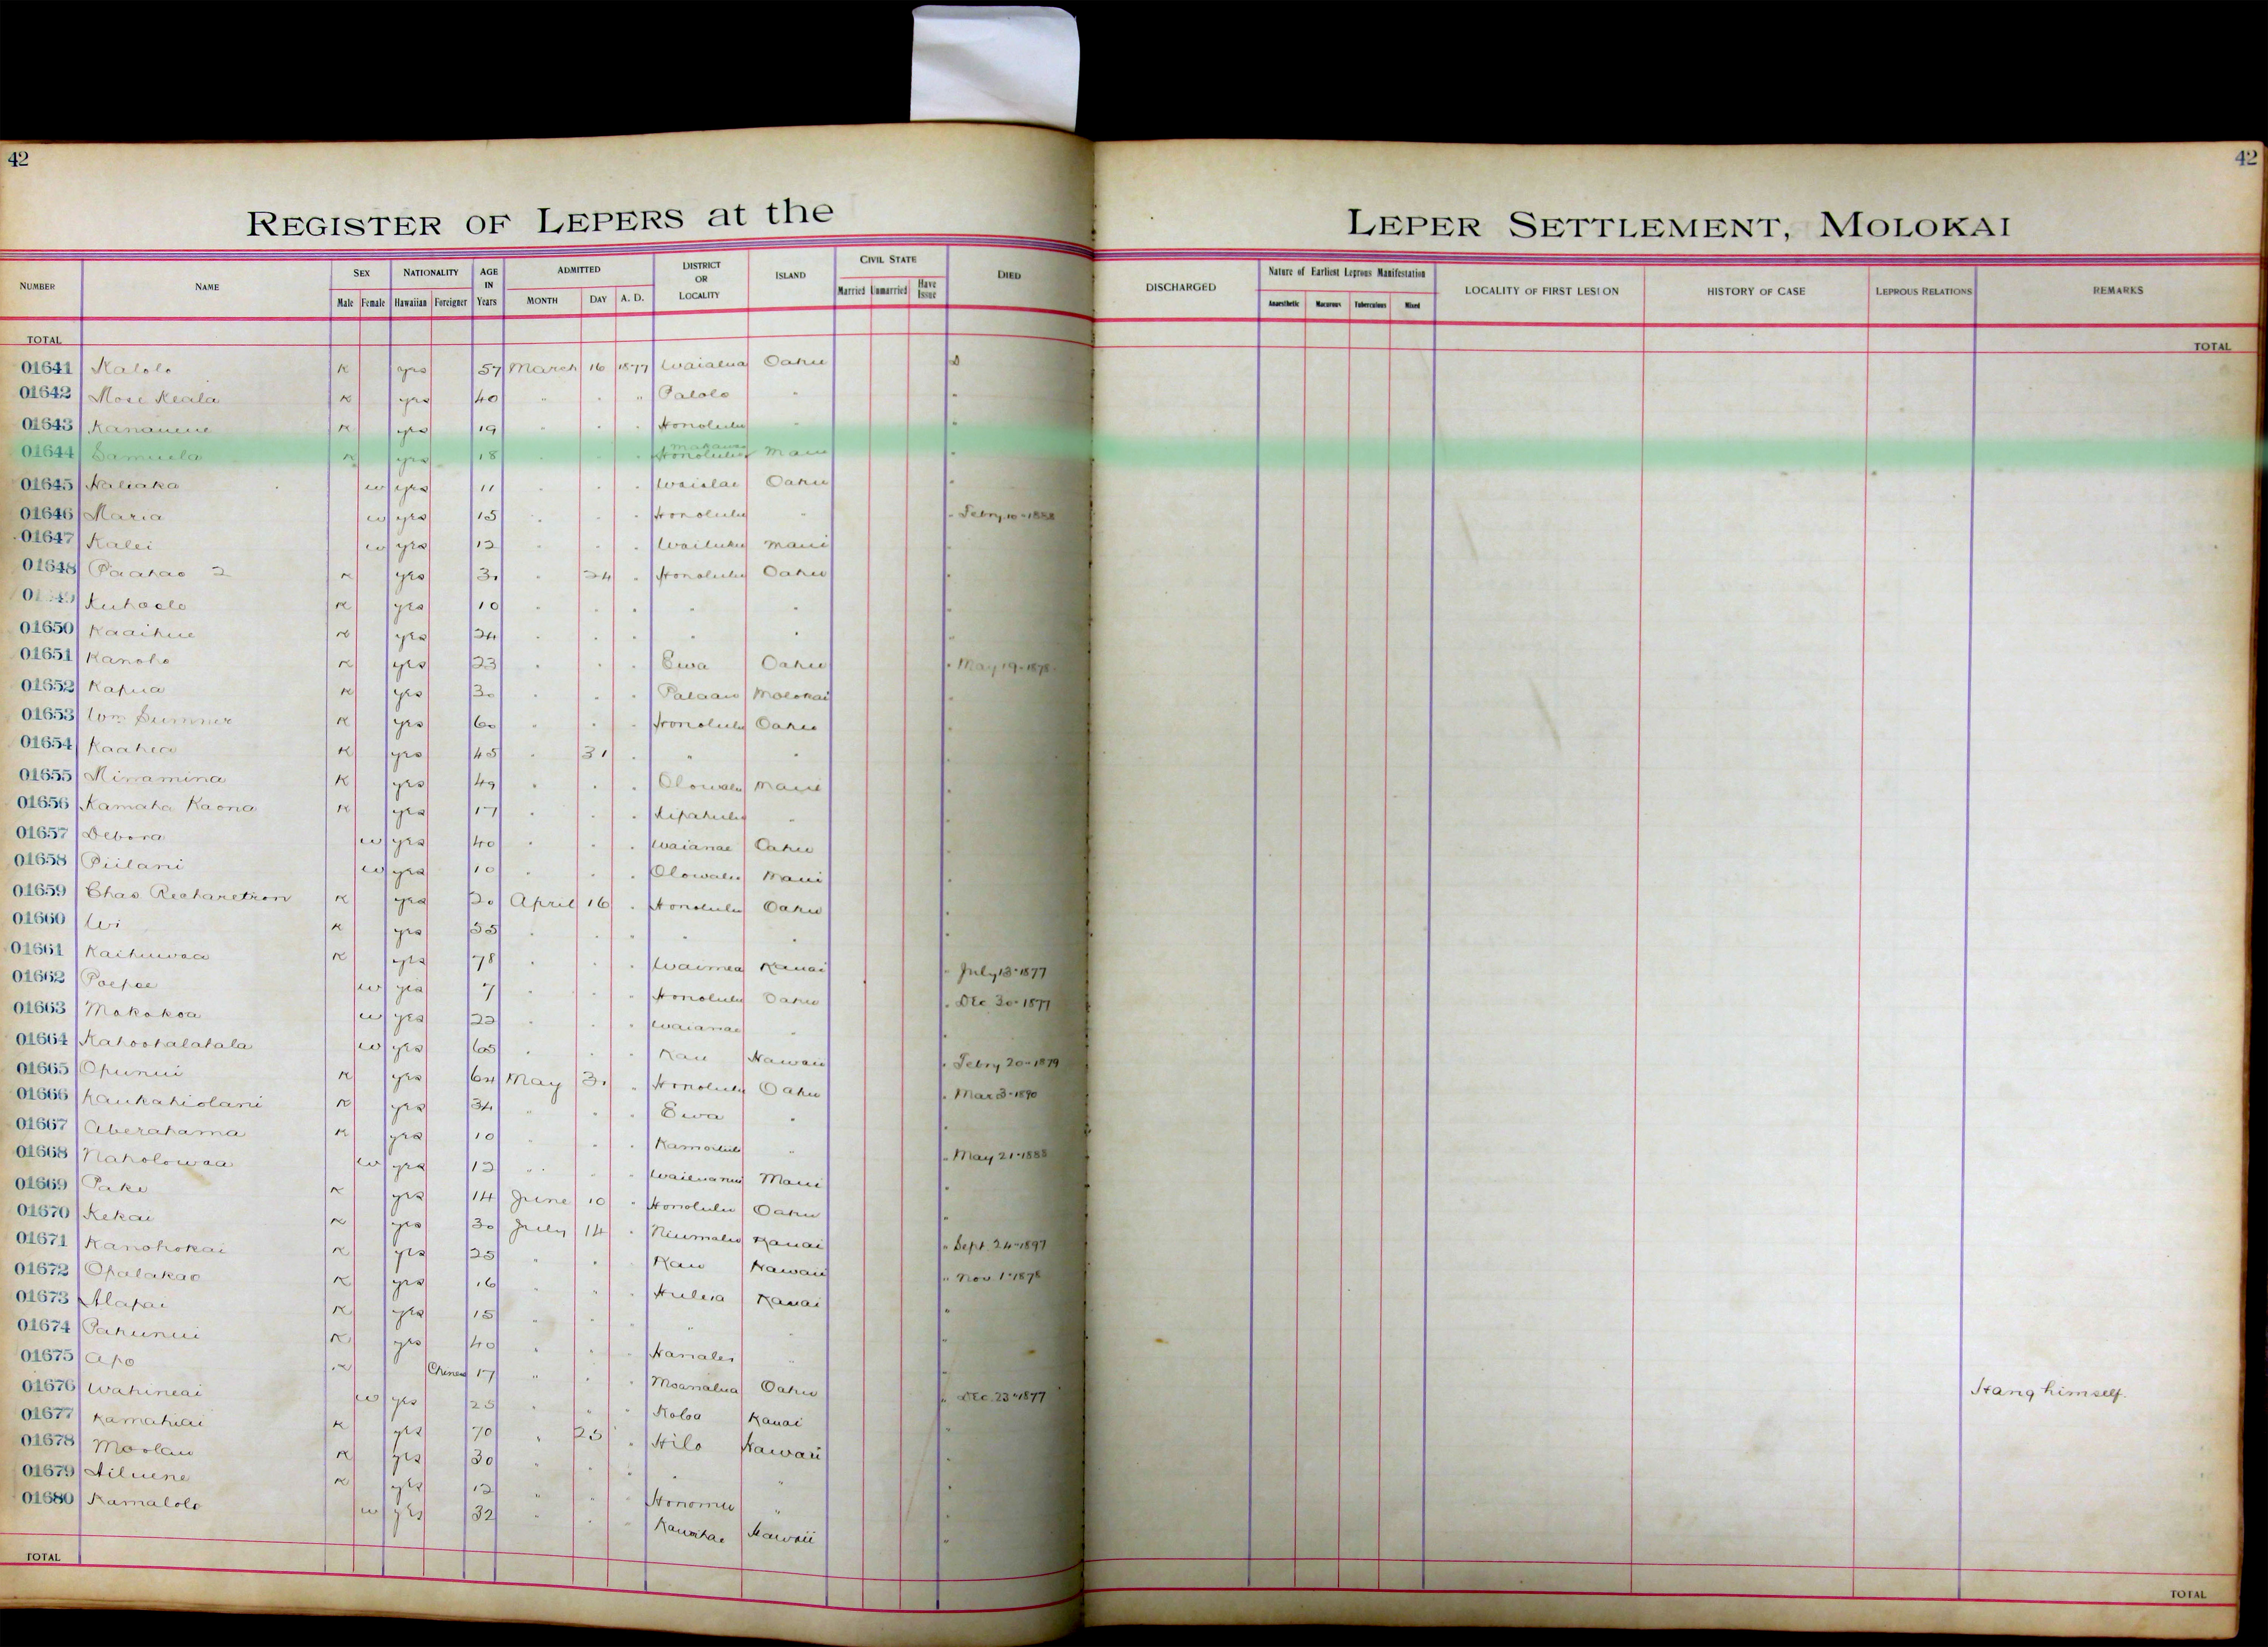 42
42
REGISTER OF LEPERS at the LEPER SETTLEMENT, MOLOKAI
NUMBER NAME SEX NATIONALITY AGE IN Years ADMITTED DISTRICT OR LOCALITY ISLAND CIVIL STATE DIED DISCHARGED Nature of Earliest Leprous Manifestation LOCALITY OF FIRST LESION HISTORY OF CASE LEPROUS RELATIONS REMARKS
Male Female Hawaiian Foreigner MONTH DAY A. D. Married Unmarried Have Issue Anaesthetic Macurous Tuberculous Mixed
TOTAL TOTAL
01641 Kalolo K yes 57 March 16 1877 Waialua Oahu D
01642 Mose Keala K yes 40 " " " Palolo " "
01643 Kananene K yes 19 " " " Honolulu " "
01644 Samuela K yes 18 " " " Makawao Honolulu Maui "
01645 Naliaka w yes 11 " " " Waialae Oahu "
01646 Maria w yes 15 " " " Honolulu " " Febry 10-1888
01647 Kalei w yes 12 " " " Wailuku Maui "
01648 Paahao 2 K yes 30 " 24 " Honolulu Oahu "
Kuhaelo K yes 10 " " " " " "
01650 Kaaihue K yes 24 " " " " " "
01651 Kanoho K yes 23 " " " Ewa Oahu " May 19-1878
01652 Kapua K yes 30 " " " Palaau Molokai "
01653 Wm Sumner K yes 60 " " " Honolulu Oahu "
01654 Kaahea K yes 45 " 31 " " " "
01655 Minamina K yes 49 " " " Olowalu Maui "
01656 Kamaha Kaona K yes 17 " " " Kipahulu " "
01657 Debora w yes 40 " " " Waianae Oahu "
01658 Piilani w yes 10 " " " Olowalu Maui "
01659 Chas Recharetson K yes 20 April 16 " Honolulu Oahu "
01660 Wi K yes 35 " " " " " "
01661 Kaihuwaa K yes 78 " " " Waimea Kauai " July 13-1877
01662 Poepoe w yes 7 " " " Honolulu Oahu " Dec 30-1877
01663 Makakoa w yes 22 " " " Waianae " "
01664 Kahoohalahala w yes 65 " " " Kau Hawaii " Febry 20-1879
01665 Opunui K yes 64 May 31 " Honolulu Oahu " Mar 3-1890
01666 Kaukahiolani K yes 34 " " " Ewa " "
01667 Aberahama K yes 10 " " " Kamoiliili " " May 21-1888
01668 Naholowaa w yes 12 " " " Wailuanui Maui "
01669 Pake K yes 14 June 10 " Honolulu Oahu "
01670 Kekai K yes 30 July 14 " Niumalu Kauai " Sept. 24-1897
01671 Kanohokai K yes 25 " " " Kau Hawaii " Nov. 1-1878
01672 Opalakao K yes 16 " " " Huleia Kauai "
01673 Alapai K yes 15 " " " " " "
01674 Pahunui K yes 40 " " " Hanalei " "
01675 Apo K Chinese 17 " " " Moanalua Oahu " Dec. 23-1877 Hang himself.
01676 Wahineai w yes 25 " " " Koloa Kauai "
01677 Kamahiai K yes 70 " 25 " Hilo Hawaii "
01678 Moolau K yes 30 " " " " " "
01679 Ailuene K yes 12 " " " Honomu " "
01680 Kamalolo w yes 32 " " " Kawaihae Hawaii "
TOTAL TOTAL